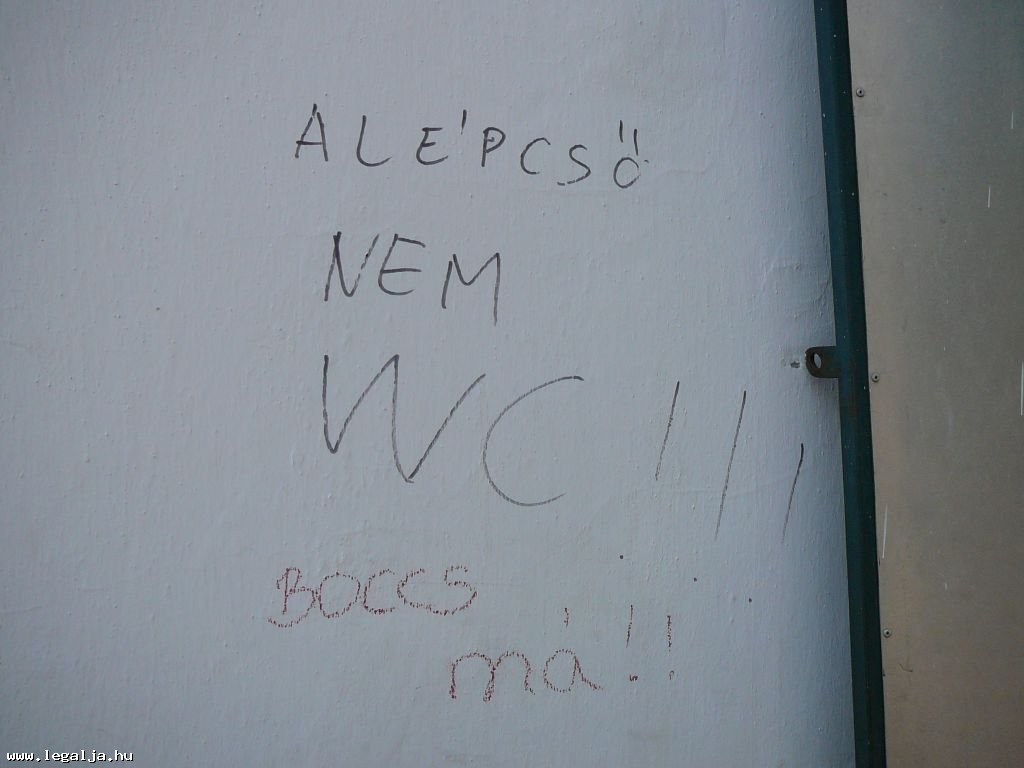 A LÉPCSŐ
NEM
WC!!!
BOCCS
má!!
www.legalja.hu